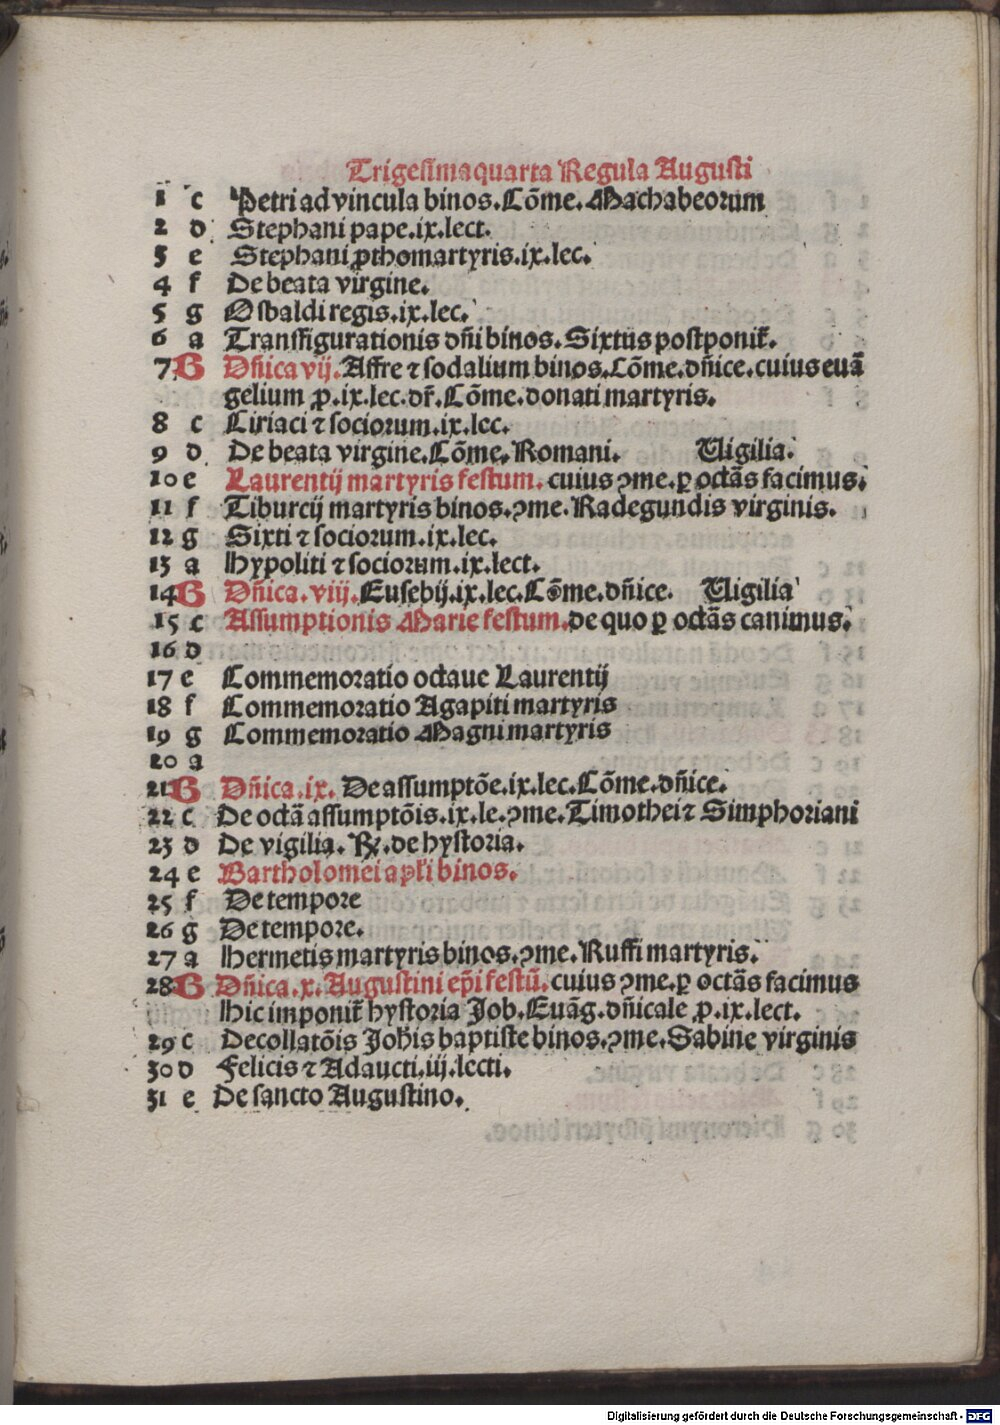 Trigesimaquarta Regula Augusti
1 c Petri ad vincula binos. Cōme. Machabeorum
2 d Stephani pape. ix. lect.
3 e Stephani ꝓthomartyris. ix. lec.
4 f De beata virgine.
5 g Osbaldi regis. ix. lec.
6 a Transfigurationis dn̄i binos. Sixtus postponit̄.
7 B Dn̄ica vij. Affre ⁊ sodalium binos. Cōme. dn̄ice. cuius euā
gelium ꝓ. ix. lec. dr̄. Cōme. donati martyris.
8 c Ciriaci ⁊ sociorum. ix. lec.
9 d De beata virgine. Cōme. Romani. Vigilia.
10 e Laurentij martyris festum. cuius ꝯme. ꝑ octās facimus.
11 f Tiburcij martyris binos. ꝯme. Radegundis virginis.
12 g Sixti ⁊ sociorum. ix. lec.
13 a Hypoliti ⁊ sociorum. ix. lect.
14 B Dn̄ica. viij. Eusebij. ix. lec. Cōme. dn̄ice. Vigilia
15 c Assumptionis Marie festum. de quo ꝑ octās canimus.
16 d
17 e Commemoratio octaue Laurentij
18 f Commemoratio Agapiti martyris
19 g Commemoratio Magni martyris
20 a
21 B Dn̄ica. ix. De assumptōe. ix. lec. Cōme. dn̄ice.
22 c De octā assumptōis. ix. le. ꝯme. Timothei ⁊ Simphoriani
23 d De vigilia. ℟. de hystoria.
24 e Bartholomei apl̄i binos.
25 f De tempore
26 g De tempore.
27 a Hermetis martyris binos. ꝯme. Ruffi martyris.
28 B Dn̄ica. x. Augustini ep̄i festū. cuius ꝯme. ꝑ octās facimus
Hic imponit̄ hystoria Job. Euāg. dn̄icale ꝓ. ix. lect.
29 c Decollatōis Joh̄is baptiste binos. ꝯme. Sabine virginis
30 d Felicis ⁊ Adaucti. iij. lecti.
31 e De sancto Augustino.
Digitalisierung gefördert durch die Deutsche Forschungsgemeinschaft - DFG